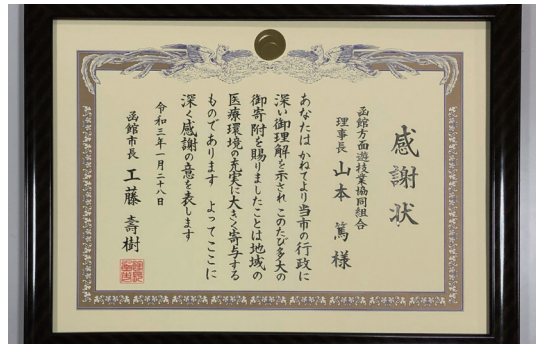 感謝状
函館方面遊技業協同組合
理事長 山本 篤 様
あなたは かねてより当市の行政に
深い御理解を示され このたび多大の
御寄附を賜りましたことは地域の
医療環境の充実に大きく寄与する
ものであります よってここに
深く感謝の意を表します
令和三年一月二十八日
函館市長 工藤 壽樹